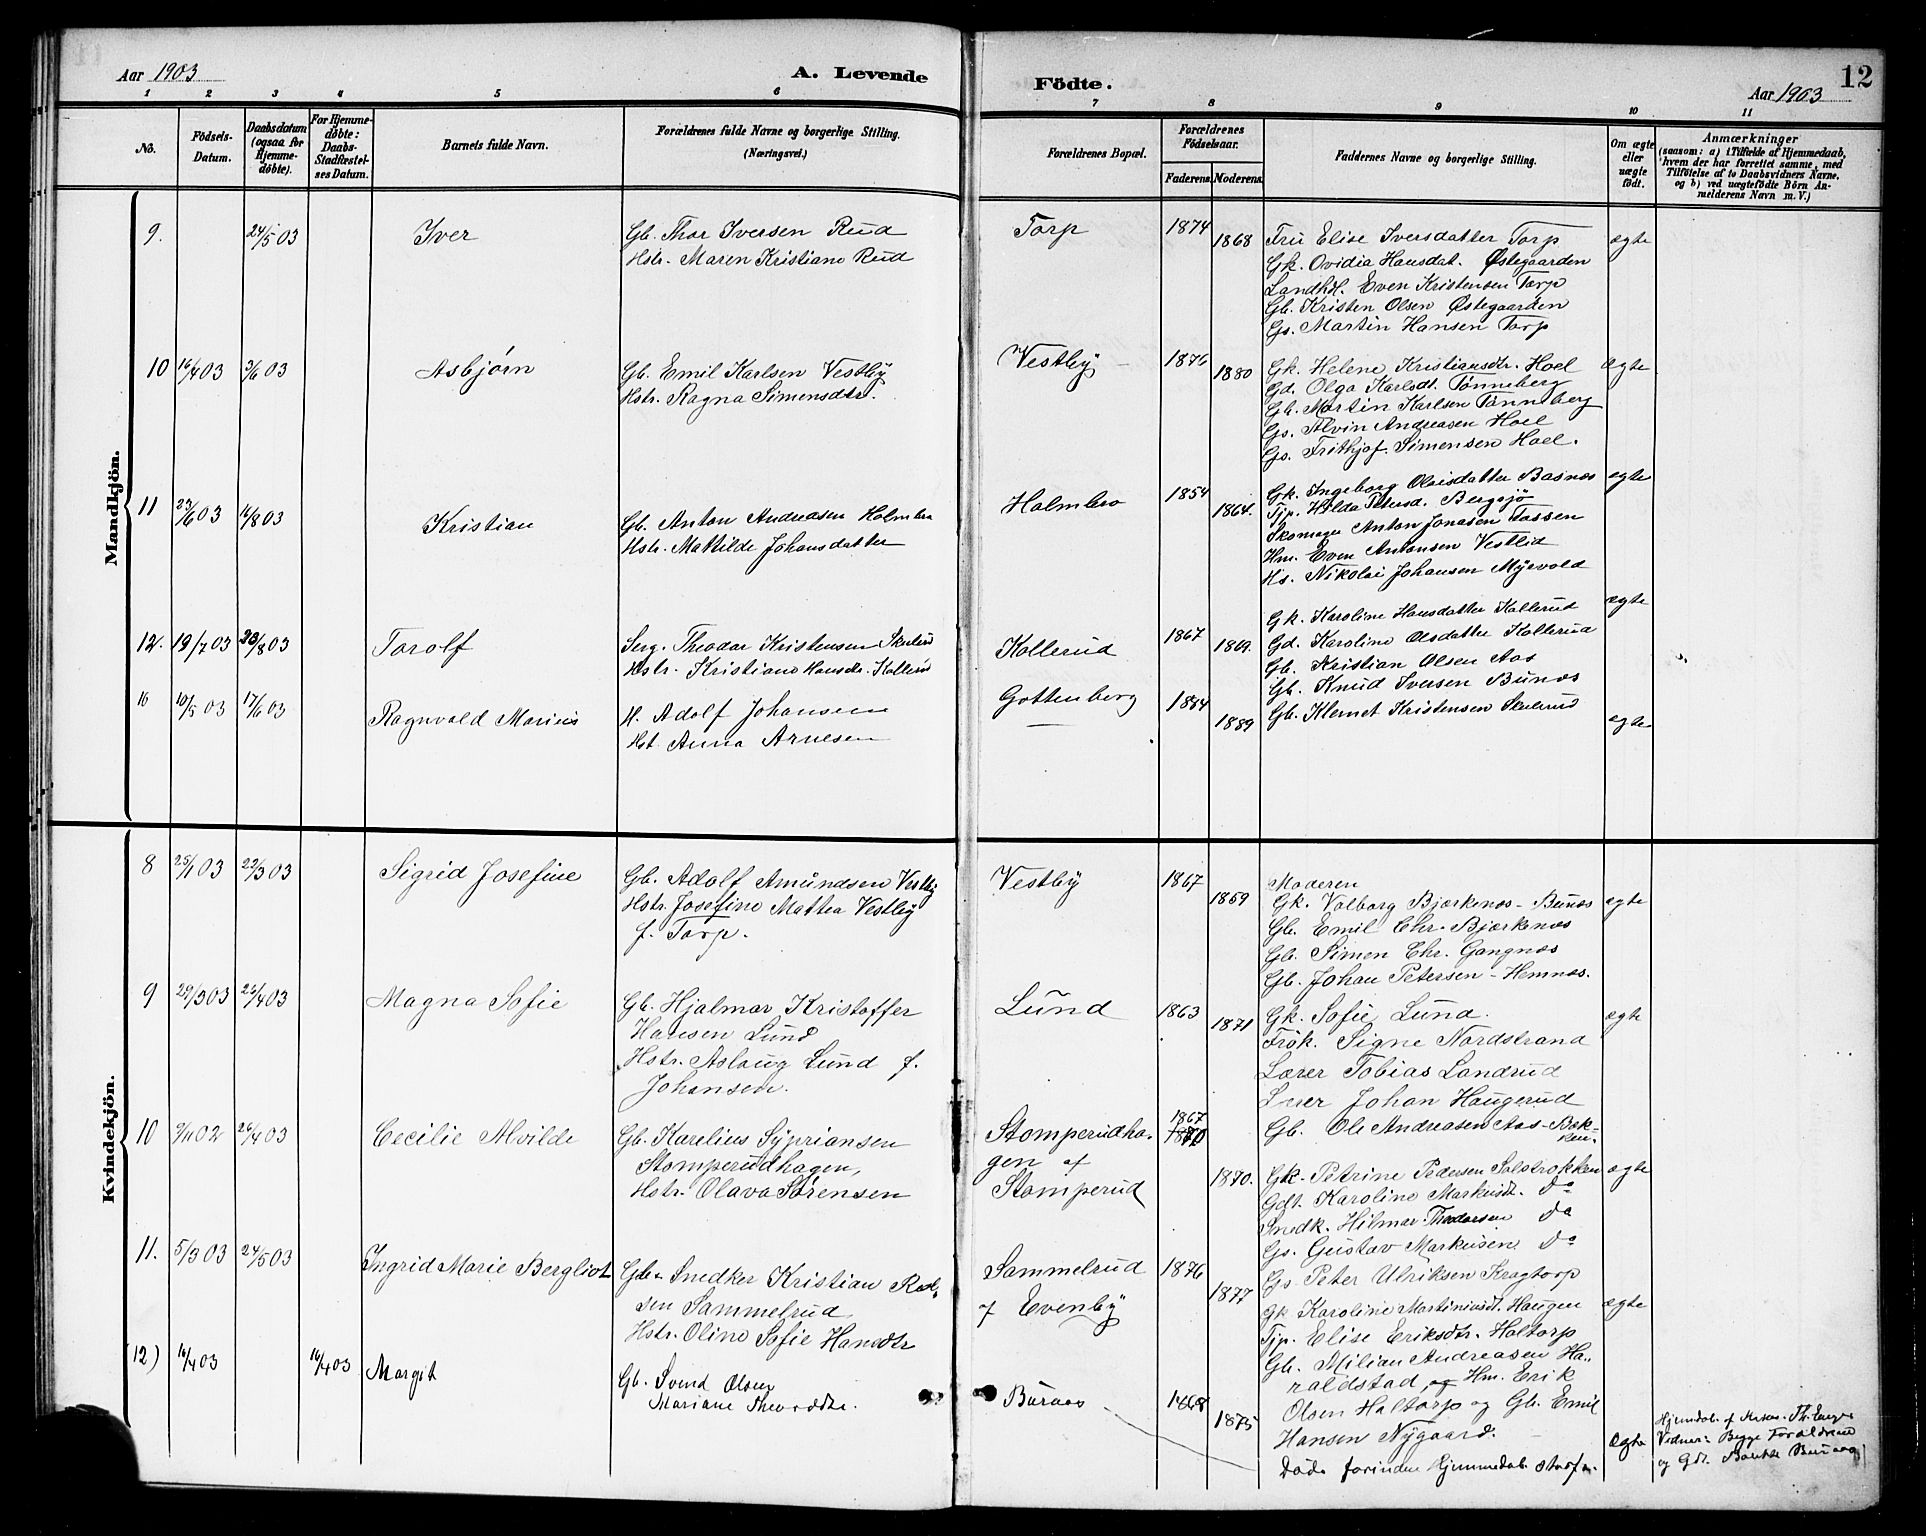 Aar 1903
A. Levende
Födte.
12
Aar 1903
1 2 3 4 5 6 7 8 9 10 11
No.
Födsels-Datum.
Daabsdatum (ogsaa for Hjemme-döbte).
For Hjemme-döbte: Daabs-Stadfæstel-ses Datum.
Barnets fulde Navn.
Forældrenes fulde Navne og borgerlige Stilling.
(Næringsvei.)
Forældrenes Bopæl.
Forældrenes Födselsaar.
Faderens. Moderens.
Faddernes Navne og borgerlige Stilling.
Om ægte eller uægte födt.
Anmærkninger
(saasom: a) i Tilfælde af Hjemmedaab,
hvem der har forrettet samme, med
Tilföielse af to Daabsvidners Navne,
og b) ved uægtefödte Börn An-
melderens Navn m. V.)
Mandkjön.
9. 24/5 03 Iver
Gb. Thor Iversen Rud
Hstr. Maren Kristiane Rud
Torp 1874 1868
Fru Elise Iversdatter Torp
Gk. Ovidia Hansdat. Østegaarden
Landhdl. Even Kristensen Torp
Gb. Kristen Olsen Østegaarden
Gs. Martin Hansen Torp
ægte
10 16/4 03 3/6 03 Asbjørn
Gb. Emil Karlsen Vestby
Hstr. Ragna Simensdtr.
Vestby 1876 1880
Gk. Helene Kristiansdtr. Hoel
Gd. Olga Karlsdt. Tønneberg
Gb. Martin Karlsen Tønneberg
Gs. Alvin Andreasen Hoel
Gs. Frithjof Simensen Hoel.
Ægte
11 23/6 03 16/8 03 Kristian
Gb. Anton Andreasen Holmbro
Hstr. Mathilde Johansdatter
Holmbro 1854 1864.
Gk. Ingeborg Olaisdatter Basnes
Tjp. Hilda Petersd. Bergsjø
Skomager Anton Jonasen Tossen
Hm. Even Antonsen Vestlid
Hs. Nikolai Johansen Myrvold
ægte
12. 19/7 03 23/8 03 Torolf
Serg. Theodor Kristensen Skulerud
Hstr. Kristiane Hansdtr. Kollerud
Kollerud 1867 1869.
Gk. Karoline Hansdatter Kollerud
Gd. Karoline Olsdatter Kollerud
Gb. Kristian Olsen Aas
Gb. Knud Iversen Bunæs
Gb. Klemet Kristensen Skulerud
ægte
16 10/5 03 17/6 03 Ragnvald Marius
H. Adolf Johansen
Hst. Anna Arnesen
Gottenberg 1884 1889
ægte
Kvindekjön.
8 25/1 03 22/3 03 Sigrid Josefine
Gb. Adolf Amundsen Vestby
Hstr. Josefine Mathea Vestby
f. Torp.
Vestby 1867 1869
Moderen
Gk. Valborg Bjørkenæs - Bunæs
Gb. Emil Chr. Bjørkenæs
Gb. Simen Chr. Gangnæs
Gb. Johan Petersen - Hemnæs.
ægte
9 29/3 03 26/4 03 Magna Sofie
Gb. Hjalmar Kristoffer
Hansen Lund
Hstr. Aslaug Lund f.
Johansen.
Lund 1863 1871
Gk. Sofie Lund.
Frök. Signe Nordstrand
Lærer Tobias Landrud
Lærer Johan Haugerud
Gb. Ole Andreasen Aas-Bækken.
ægte
10 9/11 02 26/4 03 Cecilie Alvilde
Gb. Karelius Sypriansen
Stomperudhagen,
Hstr. Olava Sørensen
Stomperudha-
gen af
Stomperud
1867 1870 1870.
Gk. Petrine Pedersen Solstrokken
Gdt. Karoline Markusdt. do
Snedk. Hilmar Theodorsen do
Gs. Gustav Markusen do
Gs. Peter Ulriksen Kragtorp
ægte
11. 5/3 03 24/5 03 Ingrid Marie Bergliot
Gb. Snedker Kristian
Sammelrud
Hstr. Oline Sofie Hansdtr
Sammelrud
f Evenby
1876 1877
Gk Karoline Martiniusdt. Haugen
Tjp. Elise Eriksdtr. Haltorp
Gb. Milian Andreasen Ha-
raldstad, og Hm. Erik
Olsen Haltorp og Gb. Emil
Hansen Nygaard.
ægte
(12) 16/4 03 16/4 03 Margit
Gb. Svend Olsen
Mariane Theodtr.
Buraas 1868 1875
Døde forinden Hjemmedab. stadf.
Ægte
Hjemdøb. af
Vidner: Begge Foraldrene
og Buraas